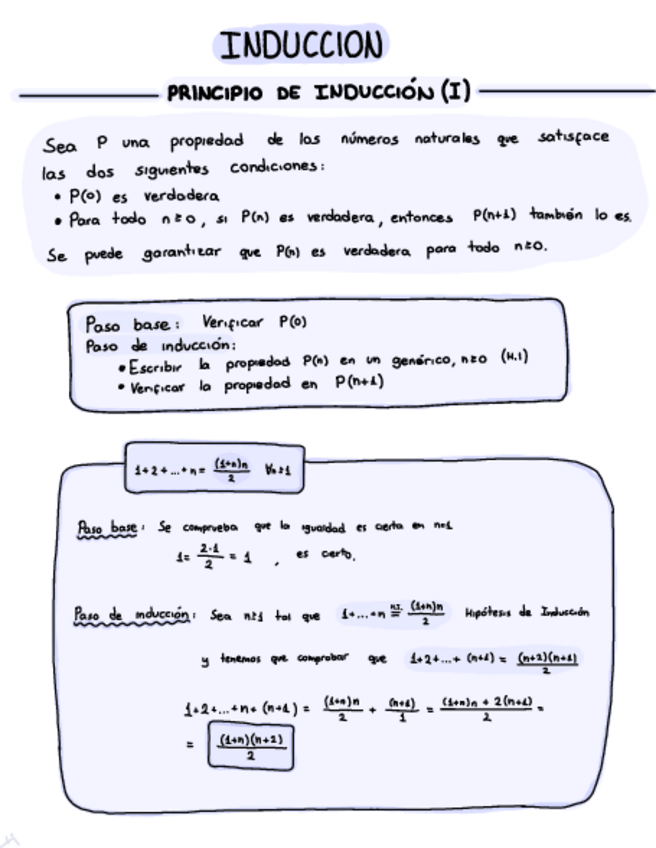 INDUCCION
PRINCIPIO DE INDUCCIÓN (I)
Sea P una propiedad de los números naturales que satisface
las dos siguientes condiciones:
• P(0) es verdadera
• Para todo n≥0, si P(n) es verdadera, entonces P(n+1) también lo es.
Se puede garantizar que P(n) es verdadera para todo n≥0.
Paso base: Verificar P(0)
Paso de inducción:
• Escribir la propiedad P(n) en un genérico, n≥0 (H.I)
• Verificar la propiedad en P(n+1)
1+2+...+n = (1+n)n/2 ∀n≥1
Paso base: Se comprueba que la igualdad es cierta en n=1
1 = 2·1/2 = 1 , es cierto.
Paso de inducción: Sea n≥1 tal que 1+...+n =(H.I.) (1+n)n/2 Hipótesis de Inducción
y tenemos que comprobar que 1+2+...+(n+1) = (n+2)(n+1)/2
1+2+...+n+(n+1) = (1+n)n/2 + (n+1)/1 = ((1+n)n + 2(n+1))/2 =
= (1+n)(n+2)/2